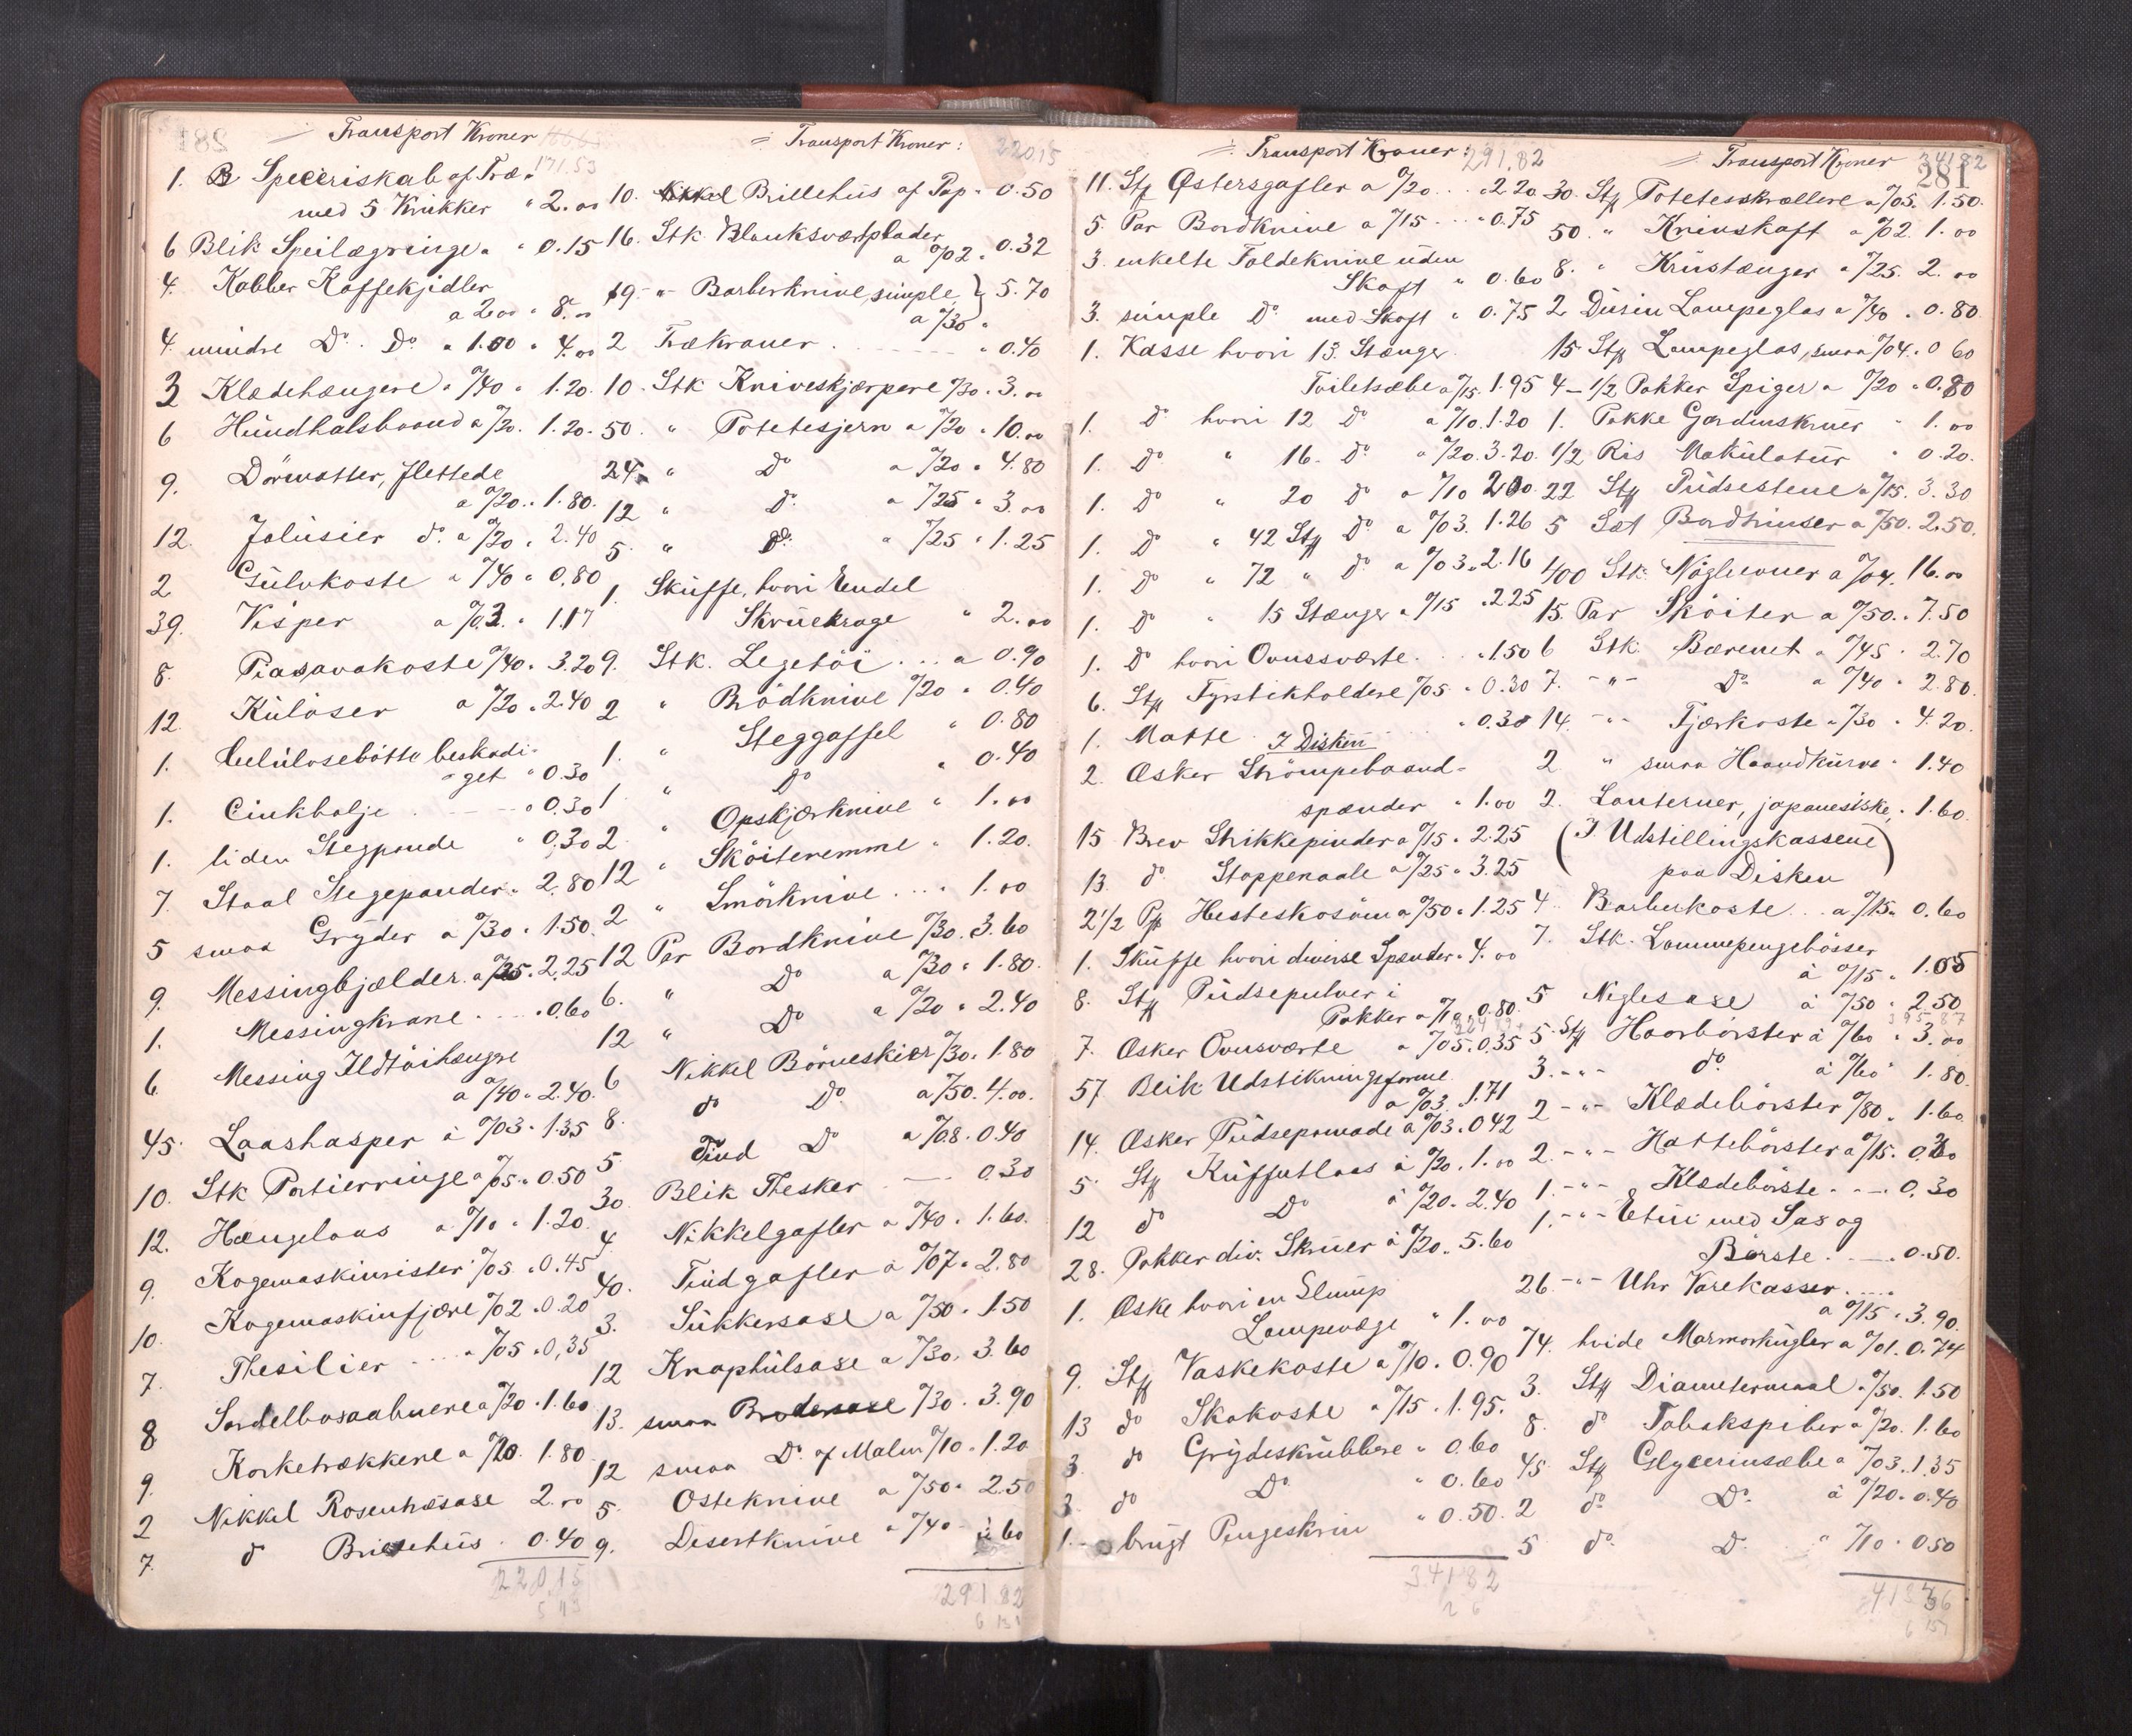 Transport Kroner
171.53
1. Speceriskab af Træ
med 5 Krukker " 2.00
6 Blik Speilægringe " 0.15
4. Kobber Kaffekjedler
a 2.00 " 8.00
4. mindre Do. Do. " 1.00 " 4.00
3 Klædehængere " 0/40 " 1.20.
6 Hundhalsbaand a 0/20. 1.20.
9. Dörmatter, flettede
a 0/20. 1.80.
12. Jalusier do. a 0/20. 2.40
2 Gulvkoste " 0/40 " 0.80
39. Visper a 0/03. " 1.17
8. Piasavakoste 0/40. 3.20
12. Kulöser a 0/20. 2.40
1. Celulosebötte beskadi-
get " 0.30
1. Cinkbalje " 0.30
1. liden Stegpande " 0.30
7. Staal Stegepander. 2.80
5 smaa Gryder a 0/30. 1.50.
9. Messingbjælder. a 0/25. 2.25
1. Messingkrane " 0.60
6. Messing Ildtöihængere
a 0/40. 2.40.
45. Laashasper à 0/03. 1.35
10. Stk Portierringe a 0/05. 0.50
12. Hængelaas a 0/10. 1.20.
9. Kogemaskinrister 0/05. 0.45
10. Kogemaskinfjære 0/02. 0.20
7. Thesilier .... " 0/05. 0,35
8 Sardelbosaabnere a 0/20. 1.60
9. Korketrækkere a 0/20. 1.80
2 Nikkel Rosenhæsaxe 2.00
7. do Brillehus. 0.40
220,15
Transport Kroner:
220.15
10. Brillehus af Pap " 0.50
16. Stk. Blanksværtplader
a 0/02 " 0.32
19 " Barberknive, simple } 5.70
a 0/30 "
2 Trækraner. " 0.40
10. Stk Kniveskjærpere 0/30. 3.00
50. " Potetesjern a 0/20 " 10.00
24. " Do a 0/20 " 4.80
12 " do. a 0/25 " 3.00
5. " do. " 0/25 " 1.25
1. Skuffe, hvori Endel
Skruekroge " 2.00
9. Stk. Legetöi ... a 0.90
2 " Brödknive 0/20 " 0.40
1. " Steggaffel " 0.80
1 " do " 0.40
2. " Opskjærknive " 1.00
12 " Sköiteremme " 1.20.
2 " Smörknive .... 1.00
12 Par Bordknive 0/30. 3.60
6. " Do a 0/30 " 1.80.
12 " Do a 0/20 " 2.40
6 Nikkel Börneskier 0/30. 1.80
8. do Do. a 0/50. 4.00.
5. Tind Do a 0/08. 0.40
30 Blik Thesker 0.30
4. Nikkelgafler a 0/40. 1.60.
40. Tindgafler a 0/07. 2.80
3. Sukkersaxe a 0/50. 1.50
12 Knaphulsaxe a 0/30. 3.60
13. smaa Brodersaxe 0/30. 3.90
12 smaa Do. af Malm 0/10. 1.20
5. Osteknive a 0/50. 2.50
9. Desertknive " 0/40 3.60
291 82
Transport Kroner:
291.82
11. Stk Østersgafler a 0/20 ... 2.20
5. Par Bordknive a 0/15 .... 0.75
3. enkelte Foldeknive uden
Skaft " 0.60
3. simple Do. med Skaft " 0.75
1. Kasse hvori 13. Stænger
Toiletsæbe a 0/15. 1.95
1. do hvori 12 do a 0/10. 1.20
1. do " 16. do. " 0/20. 3.20.
1. do " 20 do a 0/10 2.00
1. do " 42 Stk do. a 0/03. 1.26
1. do " 72 " do. a 0/03. 2.16
1. do " 15 Stænger " 0/15. 2.25
1. do hvori Ovnssværte. . 1.50
6. Stk Fyrstikholdere 0/05. 0.30
1. Matte . . . 0.30
I Disken
2. Æsker Strömpebaand-
spænder " 1.00
15 Brev Strikkepinder a 0/15. 2.25
13. do. Stoppenaale a 0/25. 3.25
2 1/2 Pk Hesteskosöm a 0/50. 1.25
1. Skuffe hvori diverse Spænder. 4.00
8. Stk Pudsepulver i
Pakker a 0/10. 0.80.
7. Æsker Ovnsværte " 0/05. 0.35
57 Blik Udstikningsforme
a 0/03. 1.71
14. Æsker Pudsepomade a 0/03. 0.42
5. Stk Kuffertlaas à 0/20. 1.00
12 do Do à 0/20. 2.40
28. Pakker div. Skruer à 0/20. 5.60
1. Æske hvori en Slump
Lampevæge " 1.00
9. Stk Vaskekoste a 0/10. 0.90
13 do Skokoste " 0/15. 1.95.
3. do Grydeskrubbere " 0.60
3. do Do. " 0.60
1. brugt Pengeskrin " 0.50.
341 82
Transport Kroner
341 82
281
30. Stk Potetesskrællere a 0/05. 1.50.
50. " Knivskaft a 0/02. 1.00
8. " Krustænger " 0/25. 2.00
2 Dusin Lampeglas a 0/40. 0.80.
15 Stk Lampeglas, smaa 0/04. 0 60
4-1/2 Pakker Spiger a 0/20. 0.80
1. Pakke Gardinskruer " 1.00
1/2 Ris Makulatur " 0.20.
22 Stk Pudsestene a 0/15. 3.30
5 Sæt a 0/50. 2.50.
400 Stk. a 0/04. 16.00
15. Par Sköiter a 0/50. 7.50
6 Stk. Bærenet a 0/45. 2.70
7. -"- Do. a 0/40. 2.80.
14. -"- Tjærkoste a 0/30. 4.20.
2. " smaa Haandkurve. 1.40
2. Lanterner, japanesiske. 1.60.
(I Udstillingskassene
paa Disken)
4. Barberkoste... a 0/15. 0.60
7. Stk. Lommepengebösser
à 0/15. 1.05
5 Neglesaxe à 0/50. 2.50
5. Stk Haarbörster à 0/60. 3.00
3. -"- do. à 0/60 1.80.
2 -"- Klædebörster 0/80. 1.60.
2. -"- Hattebörster a 0/15. 0.30
1. -"- Klædebörste. - - 0.30
1. -"- Etui med Sax og
Börste. . 0.50.
26. -"- Uhr Varekasser ....
a 0/15. 3.90.
74. hvide Marmorkugler a 0/01. 0.74
3. Stk Diametermaal. 0/50. 1.50
8. do Tobakspiber a 0/20. 1.60
45. Stk Glycerinsæbe a 0/03. 1.35
2 do. Do. à 0/20. 0.40
5 do. D. " 0/10. 0.50